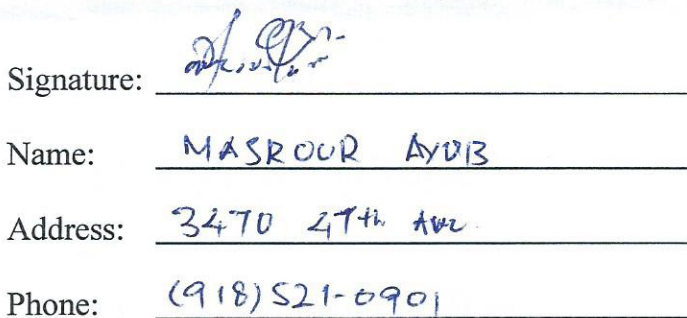 Signature:
Name: MASROUR AYUB
Address: 3470 27th Ave.
Phone: (918) 521-0901